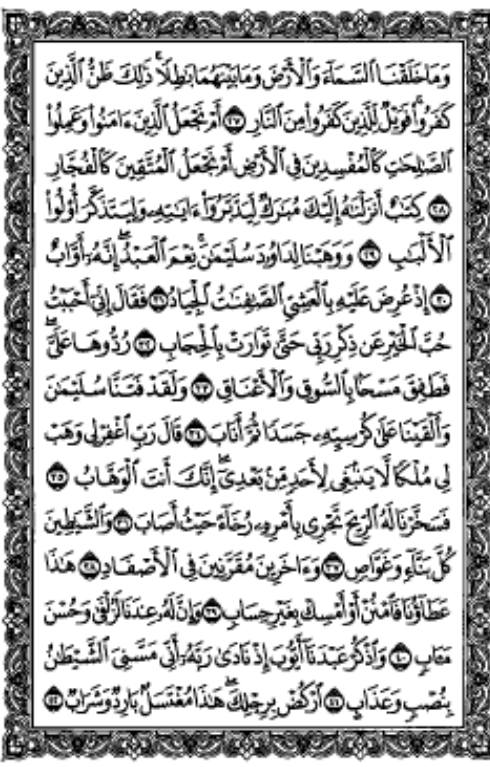 وَمَا خَلَقْنَا ٱلسَّمَآءَ وَٱلْأَرْضَ وَمَا بَيْنَهُمَا بَٰطِلًا ۚ ذَٰلِكَ ظَنُّ ٱلَّذِينَ
كَفَرُوا۟ ۚ فَوَيْلٌ لِّلَّذِينَ كَفَرُوا۟ مِنَ ٱلنَّارِ ٢٧ أَمْ نَجْعَلُ ٱلَّذِينَ ءَامَنُوا۟ وَعَمِلُوا۟
ٱلصَّٰلِحَٰتِ كَٱلْمُفْسِدِينَ فِى ٱلْأَرْضِ أَمْ نَجْعَلُ ٱلْمُتَّقِينَ كَٱلْفُجَّارِ
٢٨ كِتَٰبٌ أَنزَلْنَٰهُ إِلَيْكَ مُبَٰرَكٌ لِّيَدَّبَّرُوٓا۟ ءَايَٰتِهِۦ وَلِيَتَذَكَّرَ أُو۟لُوا۟
ٱلْأَلْبَٰبِ ٢٩ وَوَهَبْنَا لِدَاوُۥدَ سُلَيْمَٰنَ ۚ نِعْمَ ٱلْعَبْدُ ۖ إِنَّهُۥٓ أَوَّابٌ
٣٠ إِذْ عُرِضَ عَلَيْهِ بِٱلْعَشِىِّ ٱلصَّٰفِنَٰتُ ٱلْجِيَادُ ٣١ فَقَالَ إِنِّىٓ أَحْبَبْتُ
حُبَّ ٱلْخَيْرِ عَن ذِكْرِ رَبِّى حَتَّىٰ تَوَارَتْ بِٱلْحِجَابِ ٣٢ رُدُّوهَا عَلَىَّ ۖ
فَطَفِقَ مَسْحًۢا بِٱلسُّوقِ وَٱلْأَعْنَاقِ ٣٣ وَلَقَدْ فَتَنَّا سُلَيْمَٰنَ
وَأَلْقَيْنَا عَلَىٰ كُرْسِيِّهِۦ جَسَدًا ثُمَّ أَنَابَ ٣٤ قَالَ رَبِّ ٱغْفِرْ لِى وَهَبْ
لِى مُلْكًا لَّا يَنۢبَغِى لِأَحَدٍ مِّنۢ بَعْدِىٓ ۖ إِنَّكَ أَنتَ ٱلْوَهَّابُ ٣٥
فَسَخَّرْنَا لَهُ ٱلرِّيحَ تَجْرِى بِأَمْرِهِۦ رُخَآءً حَيْثُ أَصَابَ ٣٦ وَٱلشَّيَٰطِينَ
كُلَّ بَنَّآءٍ وَغَوَّاصٍ ٣٧ وَءَاخَرِينَ مُقَرَّنِينَ فِى ٱلْأَصْفَادِ ٣٨ هَٰذَا
عَطَآؤُنَا فَٱمْنُنْ أَوْ أَمْسِكْ بِغَيْرِ حِسَابٍ ٣٩ وَإِنَّ لَهُۥ عِندَنَا لَزُلْفَىٰ وَحُسْنَ
مَـَٔابٍ ٤٠ وَٱذْكُرْ عَبْدَنَآ أَيُّوبَ إِذْ نَادَىٰ رَبَّهُۥٓ أَنِّى مَسَّنِىَ ٱلشَّيْطَٰنُ
بِنُصْبٍ وَعَذَابٍ ٤١ ٱرْكُضْ بِرِجْلِكَ ۖ هَٰذَا مُغْتَسَلٌۢ بَارِدٌ وَشَرَابٌ ٤٢